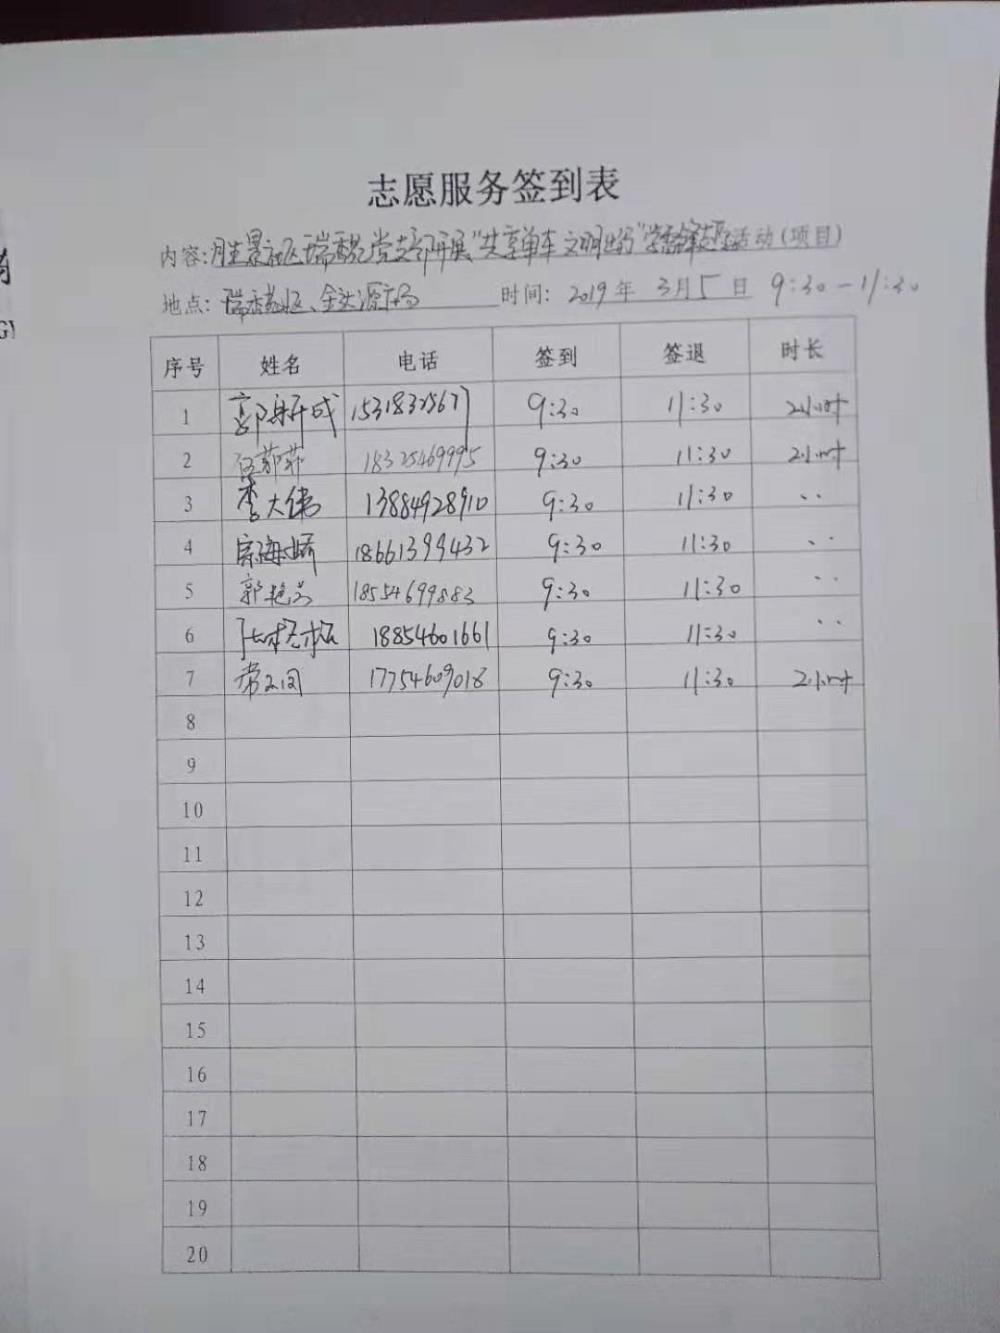 志愿服务签到表
内容:胜景社区瑞香苑党支部开展"共享单车 文明出行"学雷锋志愿活动(项目)
地点: 瑞香苑小区、金达源广场 时间: 2019年 3月5日 9:30-11:30
序号 姓名 电话 签到 签退 时长
1 成 9:30 11:30 2小时
2 菲菲 18325469995 9:30 11:30 2小时
3 李大伟 13884928910 9:30 11:30 ··
4 海娇 18661399432 9:30 11:30 ··
5 郭艳 18554699883 9:30 11:30 ··
6 18854601661 9:30 11:30 ··
7 常 17754609018 9:30 11:30 2小时
8
9
10
11
12
13
14
15
16
17
18
19
20